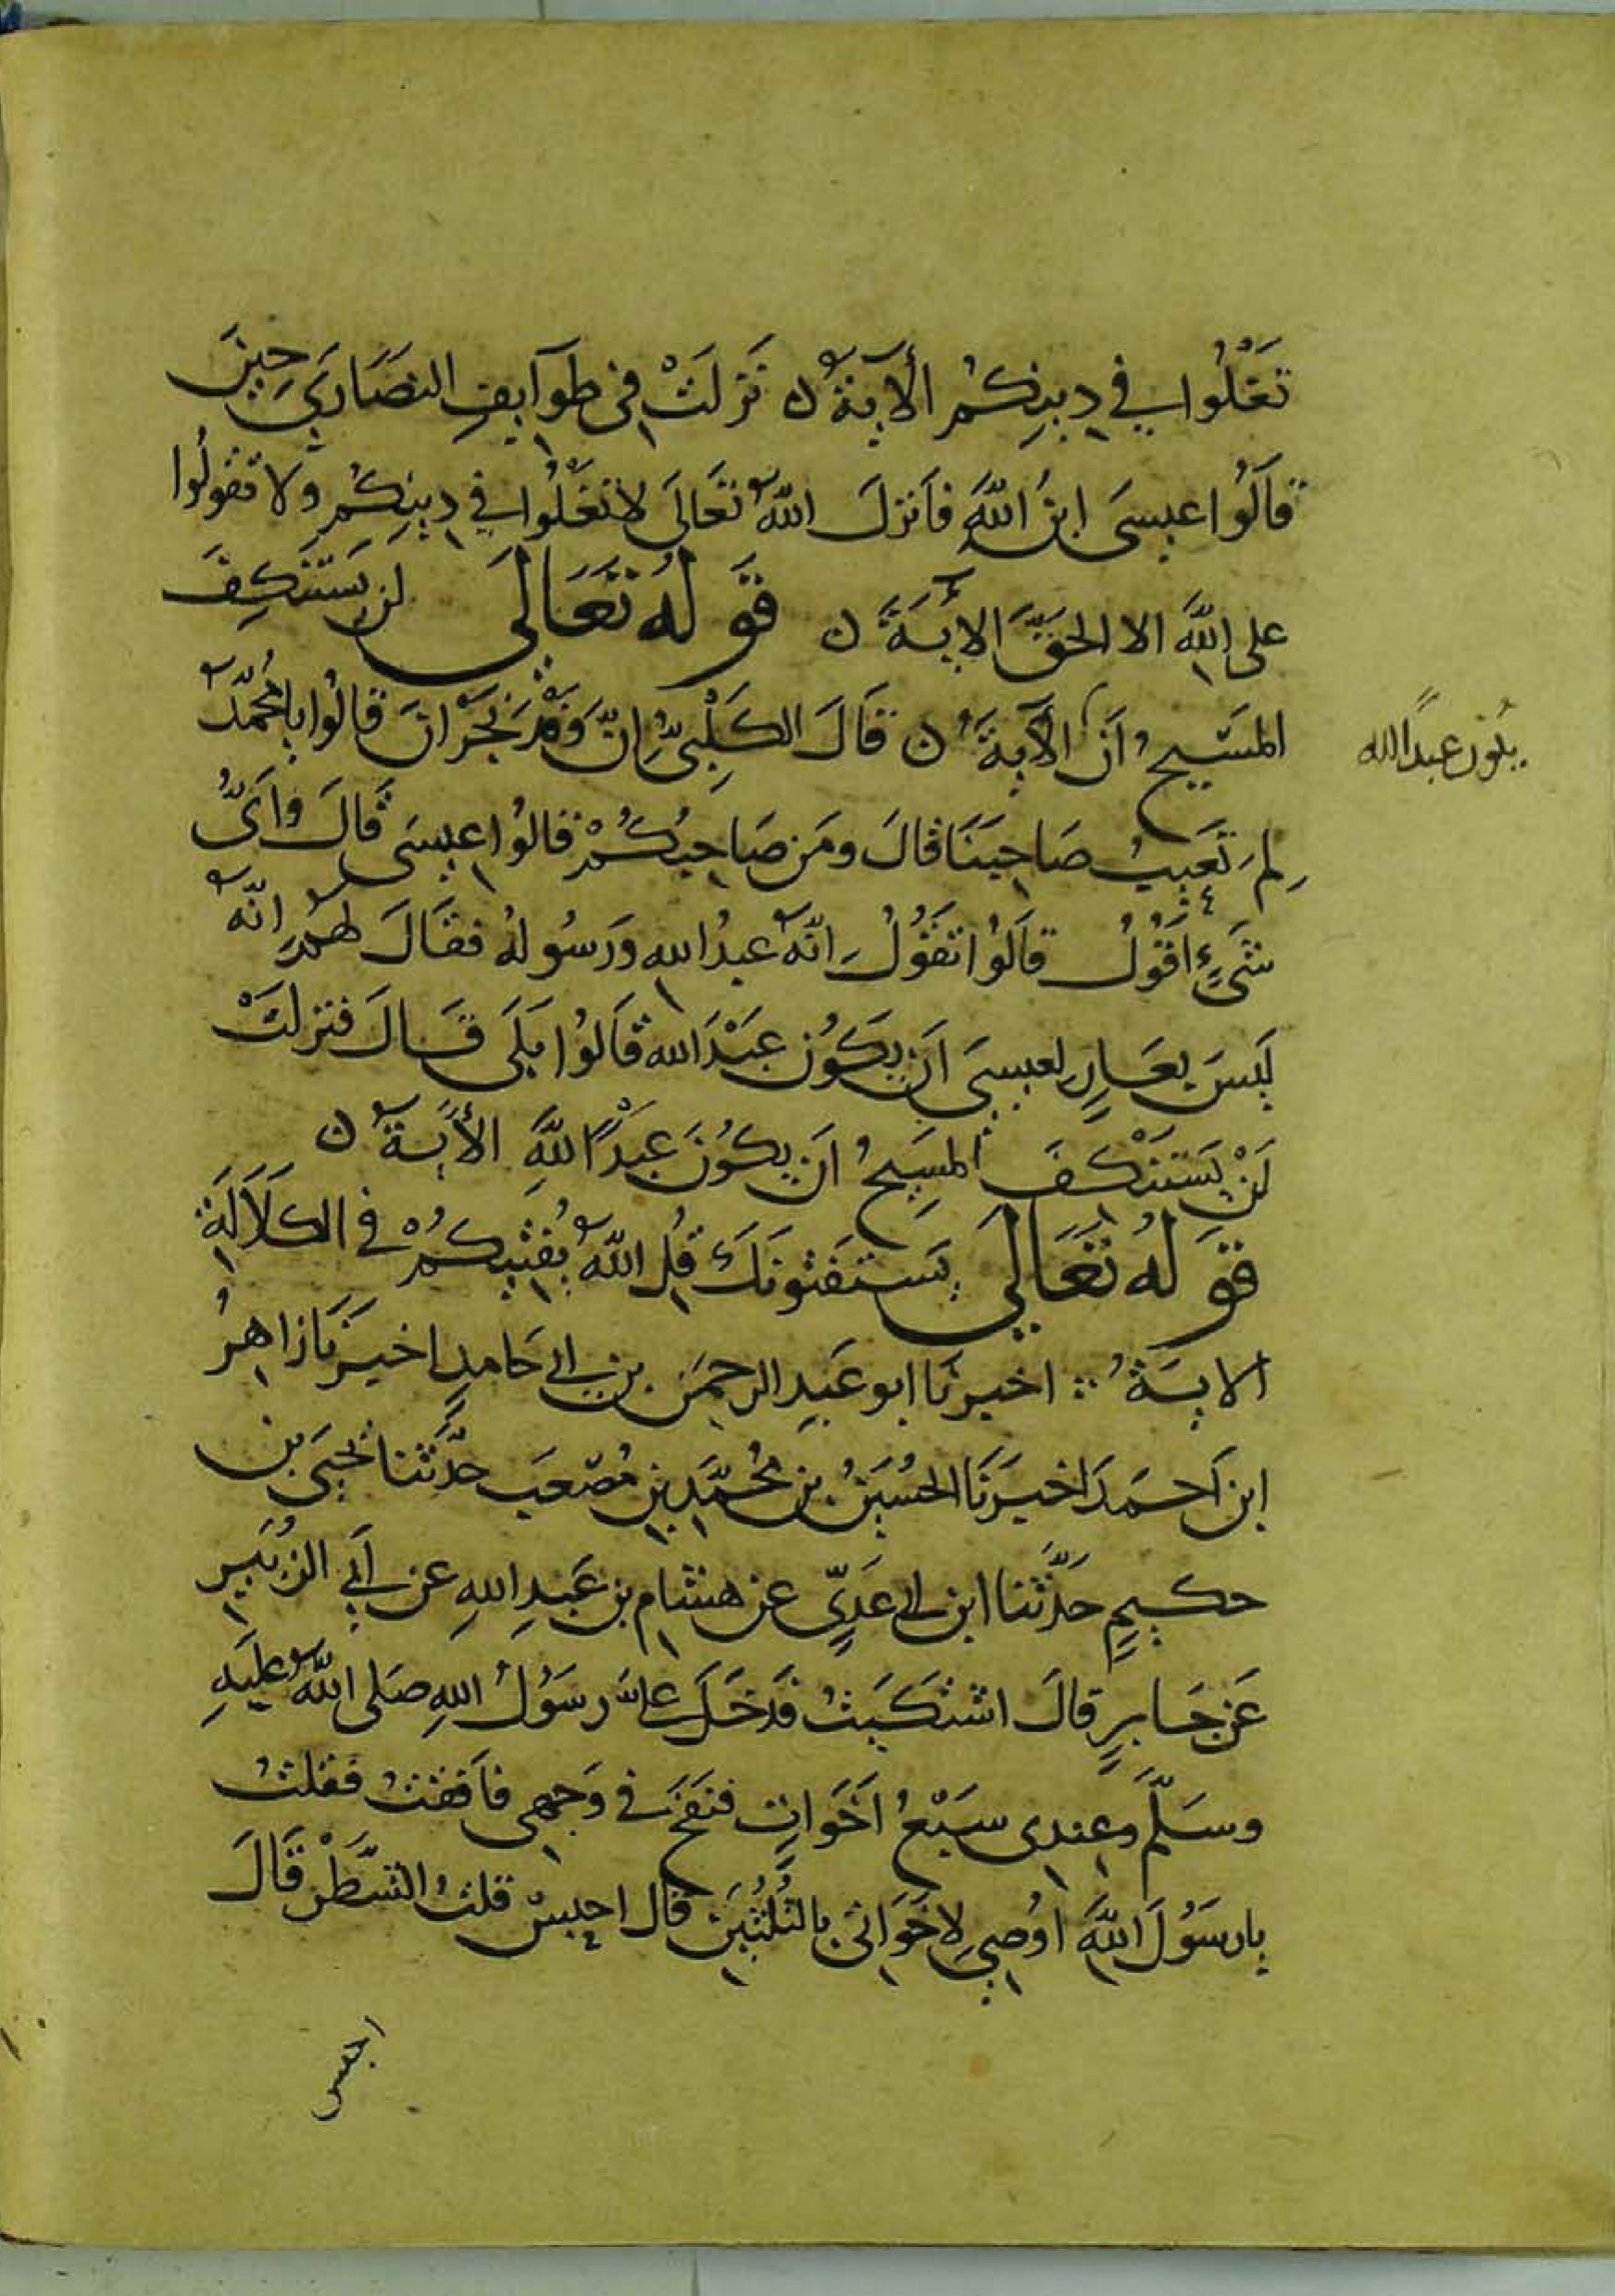 تَغْلُوا في دِينِكُم الآية ن نَزَلَتْ في طوآيفِ النصَارَي حِينَ
قَالُوا عيسَى ابنُ اللَّهِ فأنزلَ اللَّهُ تعَالَى لا تَغْلُوا في دِينِكُم ولا تقولُوا
على اللَّهِ الا الحقَّ الآيةَ ن قَولُه تَعَالَى لن يَستَنكِفَ
المسَيحُ أن الآيةَ ن قَالَ الكَلْبىُّ إنَّ وَفْدَ نَجْرَانَ قالُوا يا مُحمَّدُ
لِمَ تَعَيبُ صَاحِبَنَا قالَ ومَن صَاحِبُكُمْ قالُوا عيسَى قَالَ وأَىُّ
شَىءٍ أقُولُ قالُوا تقُولُ إنّهُ عبدُ الله ورَسُولهُ فقالَ لهُم إنّهُ
لَيسَ بعَارٍ لعيسَى أن يكُون عَبْدَ الله قالُوا بلَى قَالَ فنزلَتْ
لَنْ يَستَنْكفَ المسِيحُ أن يكُونَ عَبْدًا للَّهِ الآيةَ ن
قَولُهُ تَعَالَى يَستفتونَكَ قُلِ اللَّهُ يُفتيكُمْ في الكَلَالَةِ
الايةُ ∴ اخبرنَا ابو عَبدِ الرحمَن بن ابي حَامدٍ اخبرنَا زاهرُ
ابن أحمَدَ اخبَرنَا الحُسَينُ بن مُحمَّدِ بن مُصْعَب حدَّثَنا يَحيَى بن
حكيمٍ حَدَّثَنا ابن ابي عَديٍّ عن هشامِ بن عَبدِ اللهِ عن أبي الزُبَيرِ
عَن جَابرٍ قالَ اشتكَيتُ فدَخَلَ عليَّ رسَوُلُ اللهِ صَلى اللَّهُ عليَهِ
وسَلّمَ وعِندِى سَبْعُ أخَوَاتٍ فنفَخَ في وَجهِى فأفقتُ فقلتُ
يا رسَوُلَ اللَّهِ اوُصِي لاخَوَاتى بالثُّلُثَينِ قال اجلِس قلتُ الشَّطْرَ قَالَ
اجلس
يكون عبدًا لله